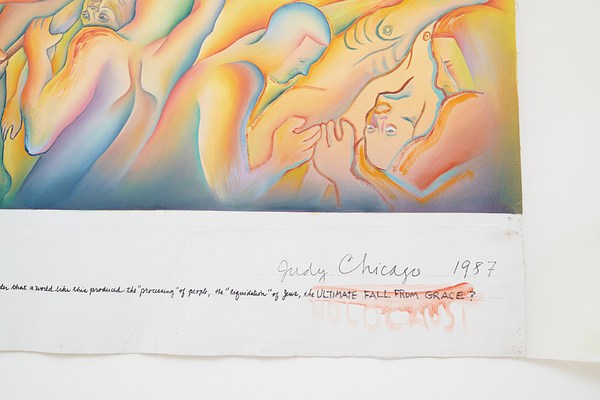 Judy Chicago 1987
der that a world like this produced the "processing" of people, the "liquidation" of Jews, the ULTIMATE FALL FROM GRACE?
HOLOCAUST